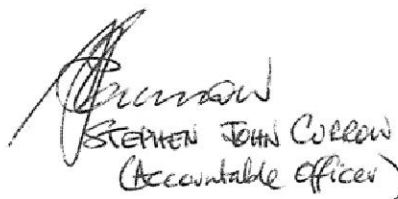 STEPHEN JOHN CURROW
(Accountable Officer)